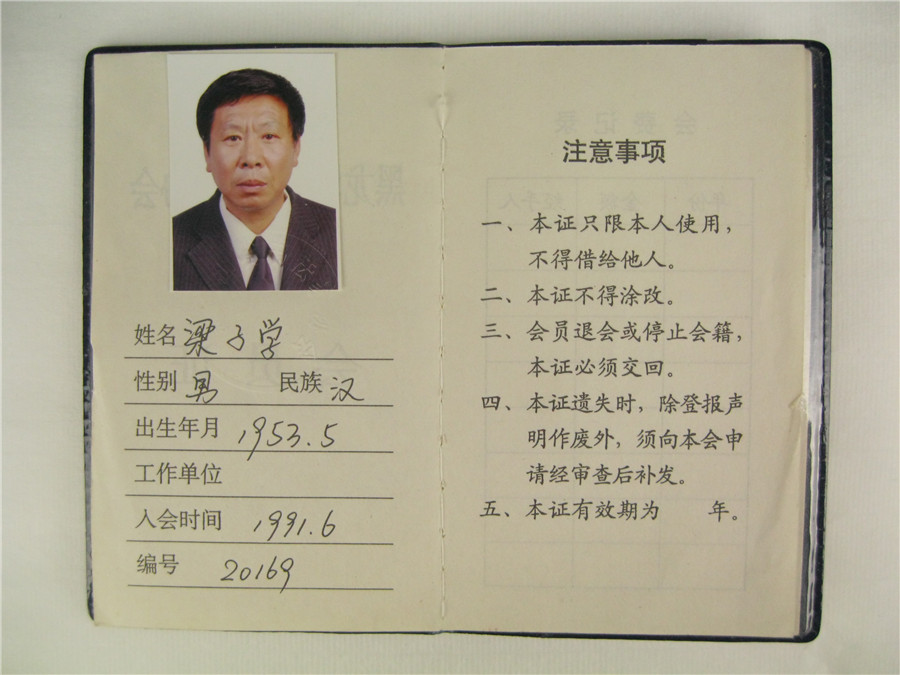 姓名 梁子学
性别 男 民族 汉
出生年月 1953.5
工作单位
入会时间 1991.6
编号 20169
注意事项
一、本证只限本人使用，
不得借给他人。
二、本证不得涂改。
三、会员退会或停止会籍，
本证必须交回。
四、本证遗失时，除登报声
明作废外，须向本会申
请经审查后补发。
五、本证有效期为 年。